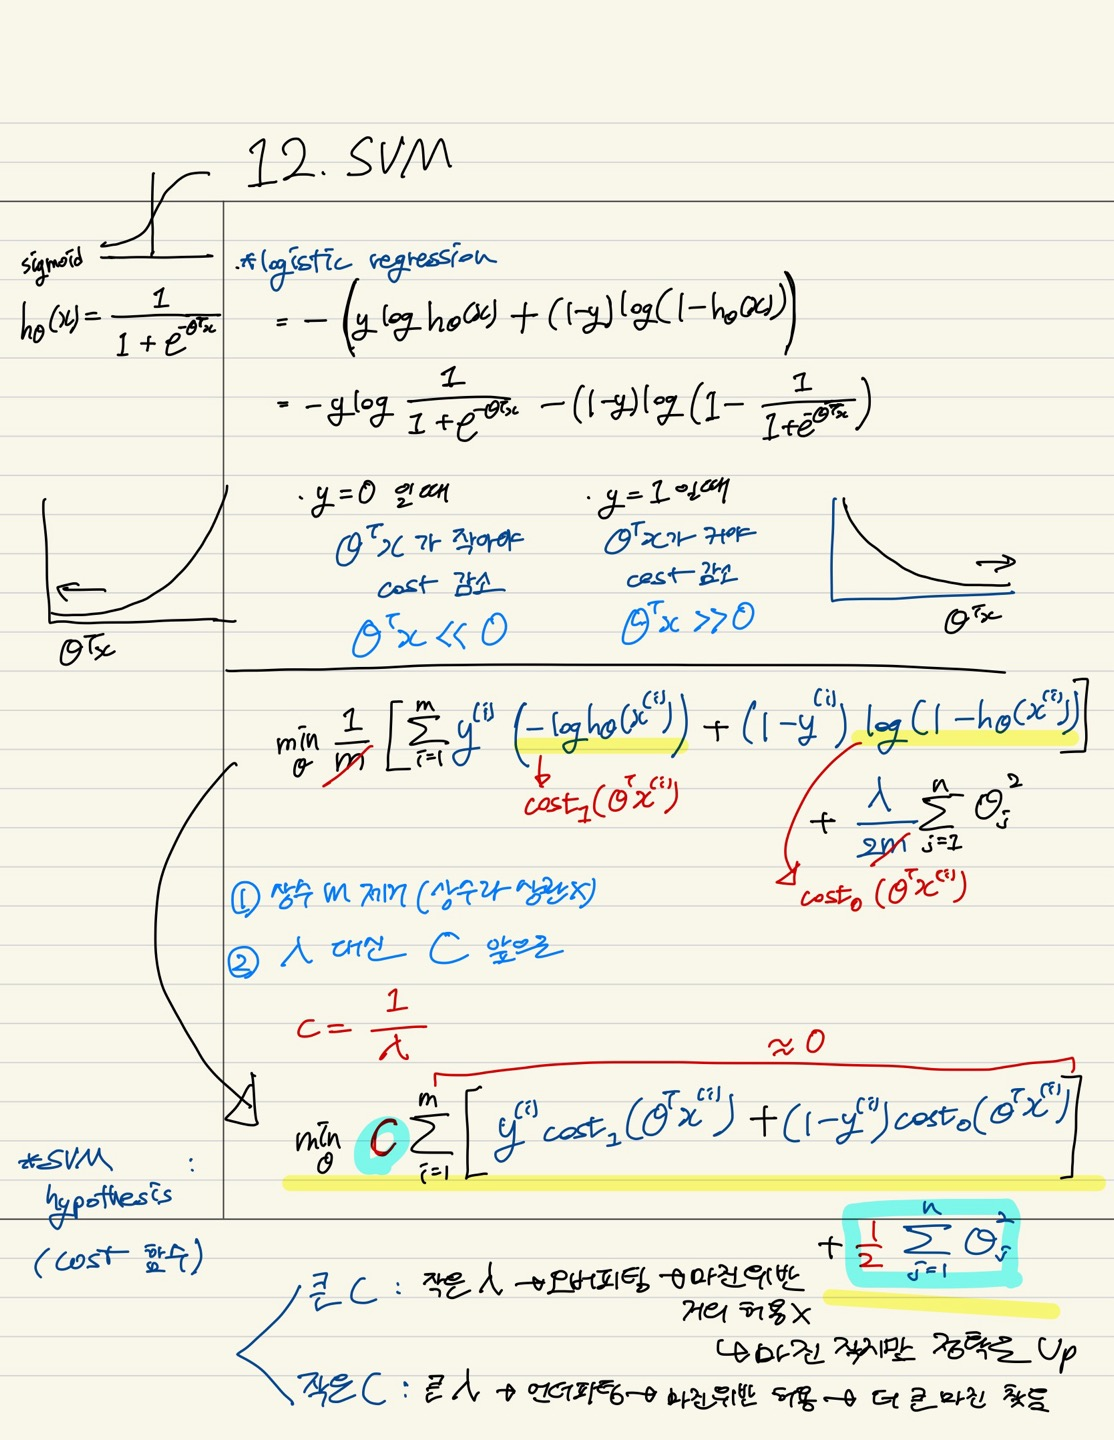 12. SVM
sigmoid
hθ(x) = 1 / (1 + e^(-θᵀx))
*logistic regression
= - (y log hθ(x) + (1-y) log(1 - hθ(x)))
= - y log 1 / (1 + e^(-θᵀx)) - (1-y) log(1 - 1 / (1 + e^(-θᵀx)))
θᵀx
· y = 0 일때
θᵀx 가 작아야
cost 감소
θᵀx << 0
· y = 1 일때
θᵀx가 커야
cost 감소
θᵀx >> 0
θᵀx
min θ 1/m [ Σ i=1 m y⁽ⁱ⁾ (-log hθ(x⁽ⁱ⁾)) + (1 - y⁽ⁱ⁾) log(1 - hθ(x⁽ⁱ⁾)) ]
cost₁(θᵀx⁽ⁱ⁾)
+ λ/2m Σ j=1 n θj²
cost₀(θᵀx⁽ⁱ⁾)
① 상수 m 제거 (상수라 상관x)
② λ 대신 C 앞으로
C = 1/λ
≈ 0
min θ C Σ i=1 m [ y⁽ⁱ⁾ cost₁(θᵀx⁽ⁱ⁾) + (1 - y⁽ⁱ⁾) cost₀(θᵀx⁽ⁱ⁾) ]
+ 1/2 Σ j=1 n θj²
*SVM :
hypothesis
(cost 함수)
큰 C : 작은 λ → 오버피팅 → 마진위반
거의 허용 x
↳ 마진 작지만 정확은 Up
작은 C : 큰 λ → 언더피팅 → 마진위반 허용 → 더 큰 마진 찾음